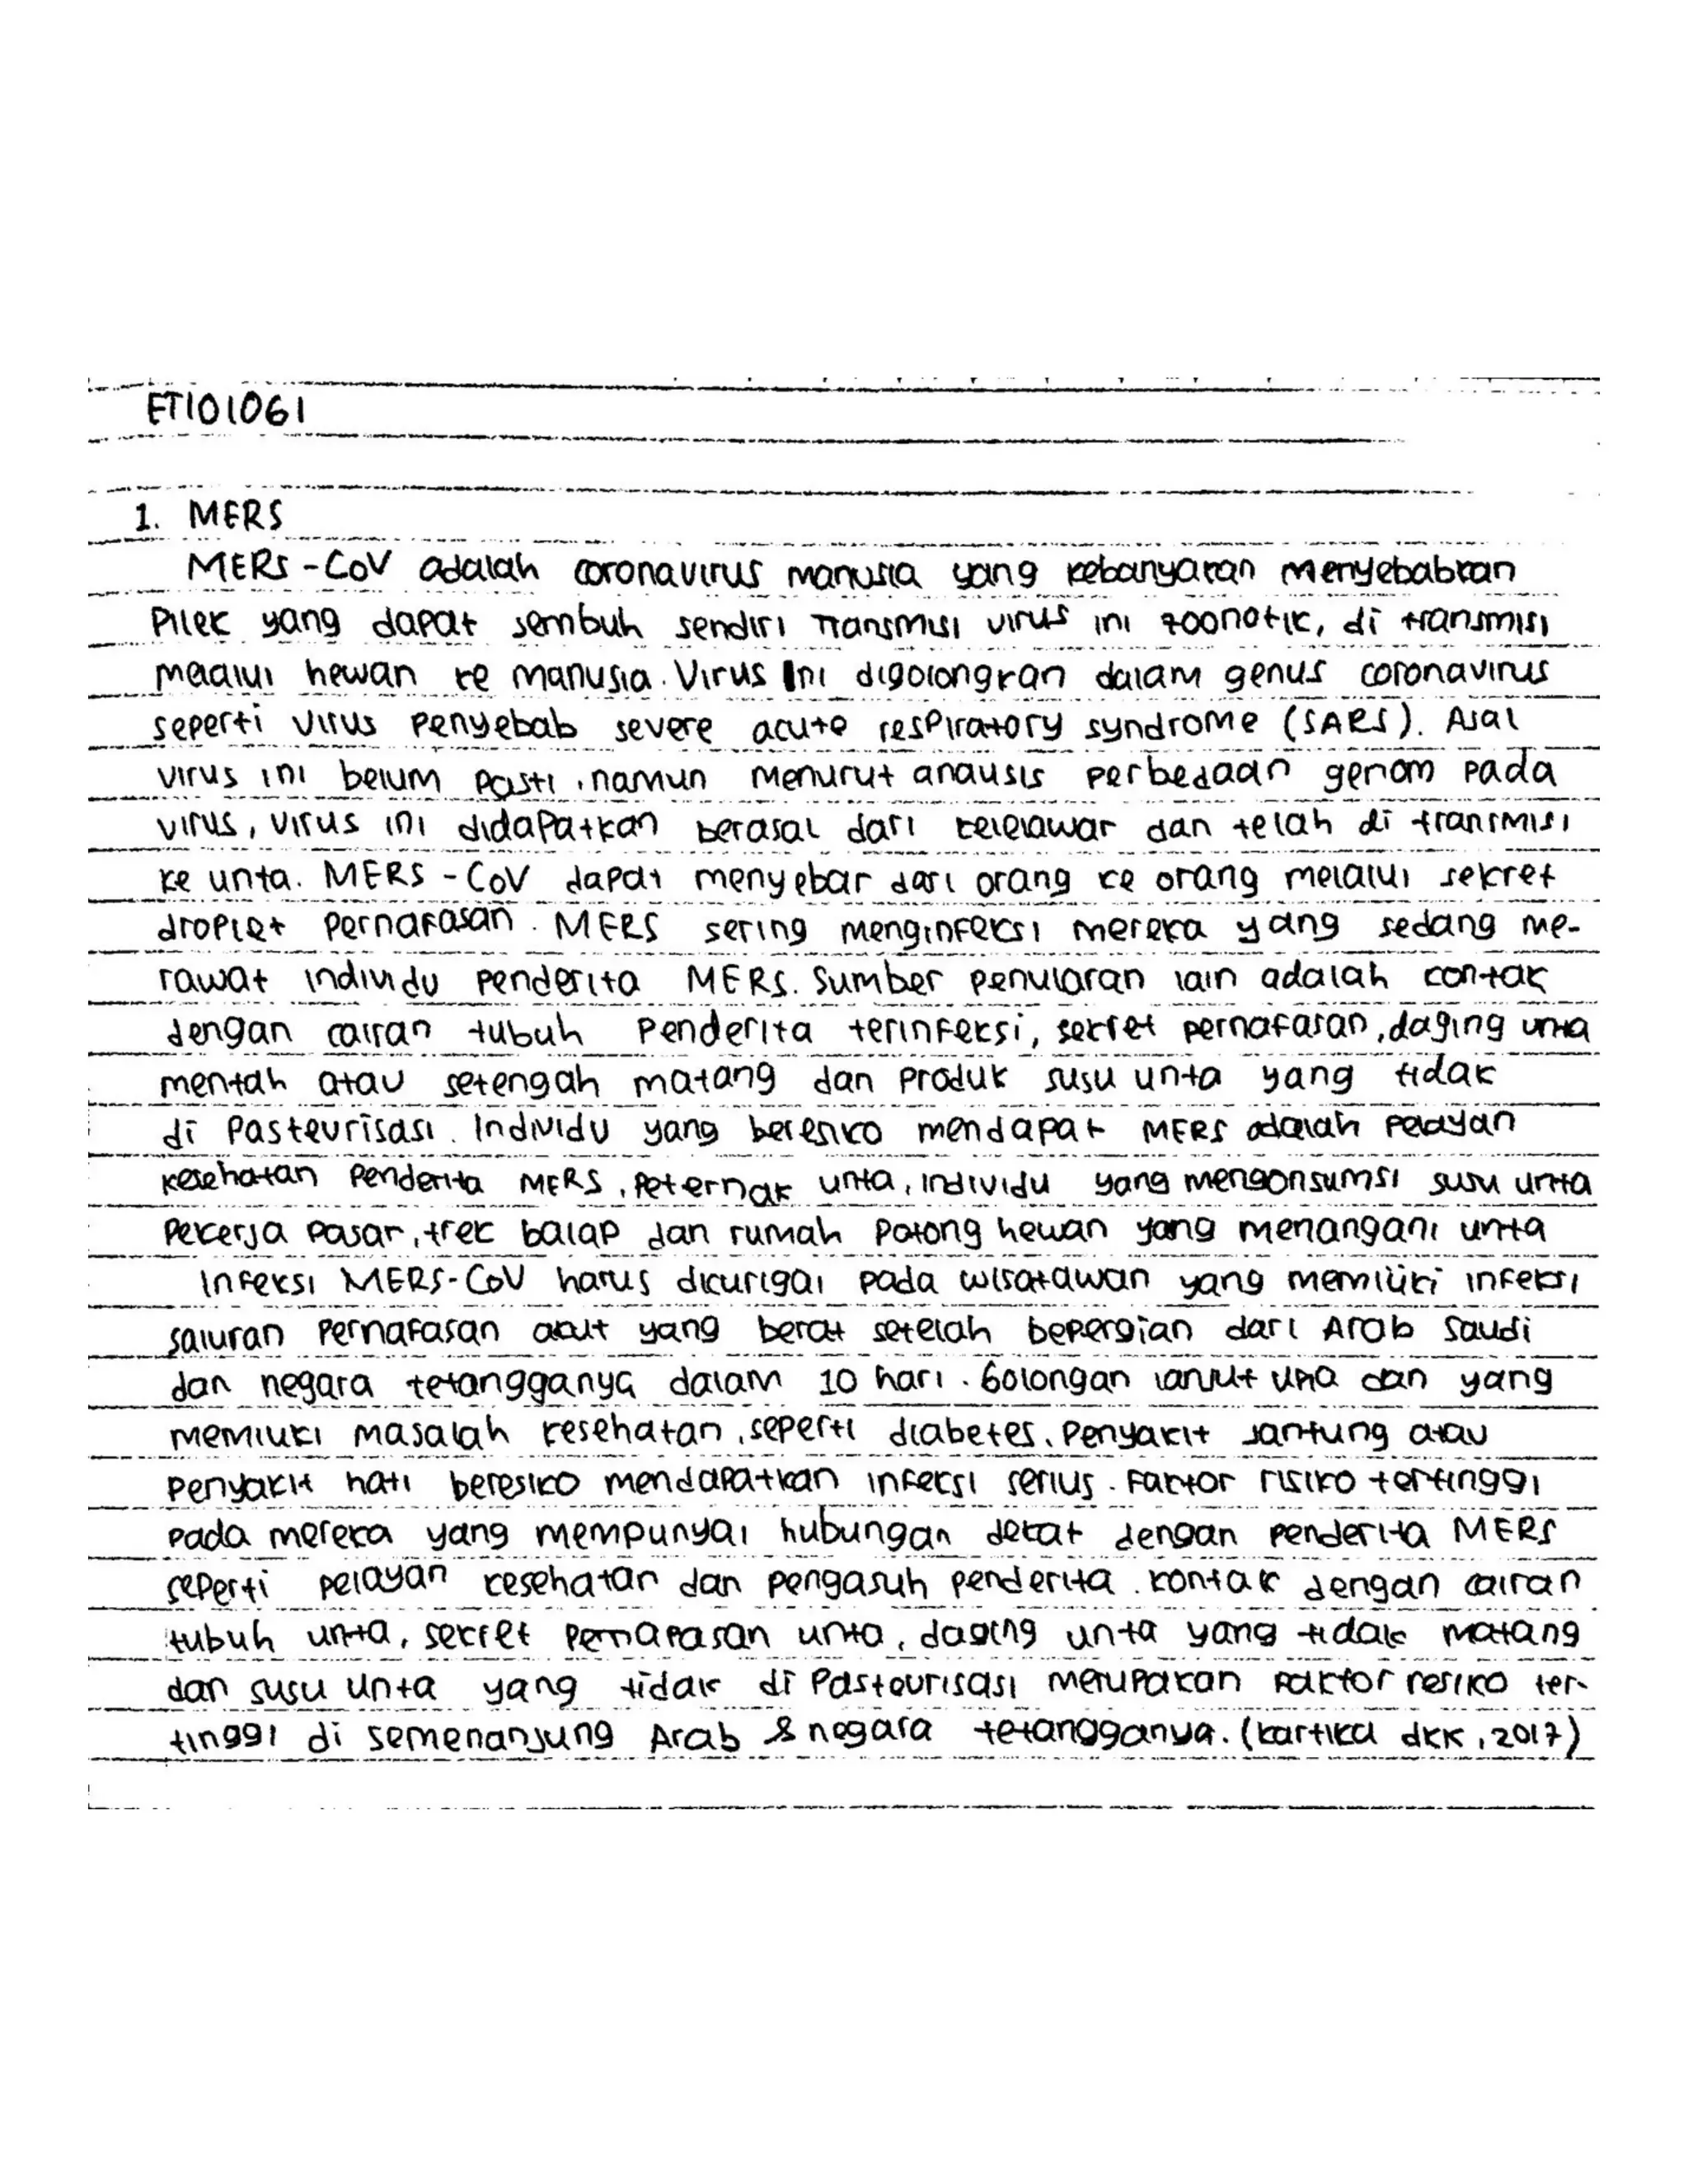 ET101061
1. MERS
MERS-CoV adalah coronavirus manusia yang kebanyakan menyebabkan
Pilek yang dapat sembuh sendiri Transmisi virus ini zoonotik, di transmisi
melalui hewan ke manusia. Virus Ini digolongkan dalam genus coronavirus
seperti virus Penyebab severe acute respiratory syndrome (SARS). Asal
virus ini belum pasti, namun menurut analisis perbedaan genom pada
virus, virus ini didapatkan berasal dari kelelawar dan telah di transmisi
ke unta. MERS - CoV dapat menyebar dari orang ke orang melalui sekret
droplet Pernafasan. MERS sering menginfeksi mereka yang sedang me-
rawat individu penderita MERS. Sumber penularan lain adalah contak
dengan cairan tubuh Penderita terinfeksi, sekret pernafasan, daging unta
mentah atau setengah matang dan Produk susu unta yang tidak
di Pasteurisasi. Individu yang beresiko mendapat MERS adalah Pelayan
kesehatan Penderita MERS, Peternak unta, individu yang mengonsumsi susu unta
Pekerja Pasar, trek balap dan rumah Potong hewan yang menangani unta
Infeksi MERS-CoV harus dicurigai pada wisatawan yang memiliki infeksi
saluran Pernafasan akut yang berat setelah bepergian dari Arab Saudi
dan negara tetangganya dalam 10 hari. Golongan lanjut usia dan yang
memiliki masalah kesehatan, seperti diabetes, Penyakit Jantung atau
Penyakit hati beresiko mendapatkan infeksi serius. Faktor risiko tertinggi
Pada mereka yang mempunyai hubungan dekat dengan penderita MERS
seperti pelayan kesehatan dan pengasuh penderita. kontak dengan cairan
tubuh unta, sekret Pernafasan unta, daging unta yang tidak matang
dan susu unta yang tidak di Pasteurisasi merupakan Faktor resiko ter-
tinggi di semenanjung Arab & negara tetangganya. (kartika dkk, 2017)